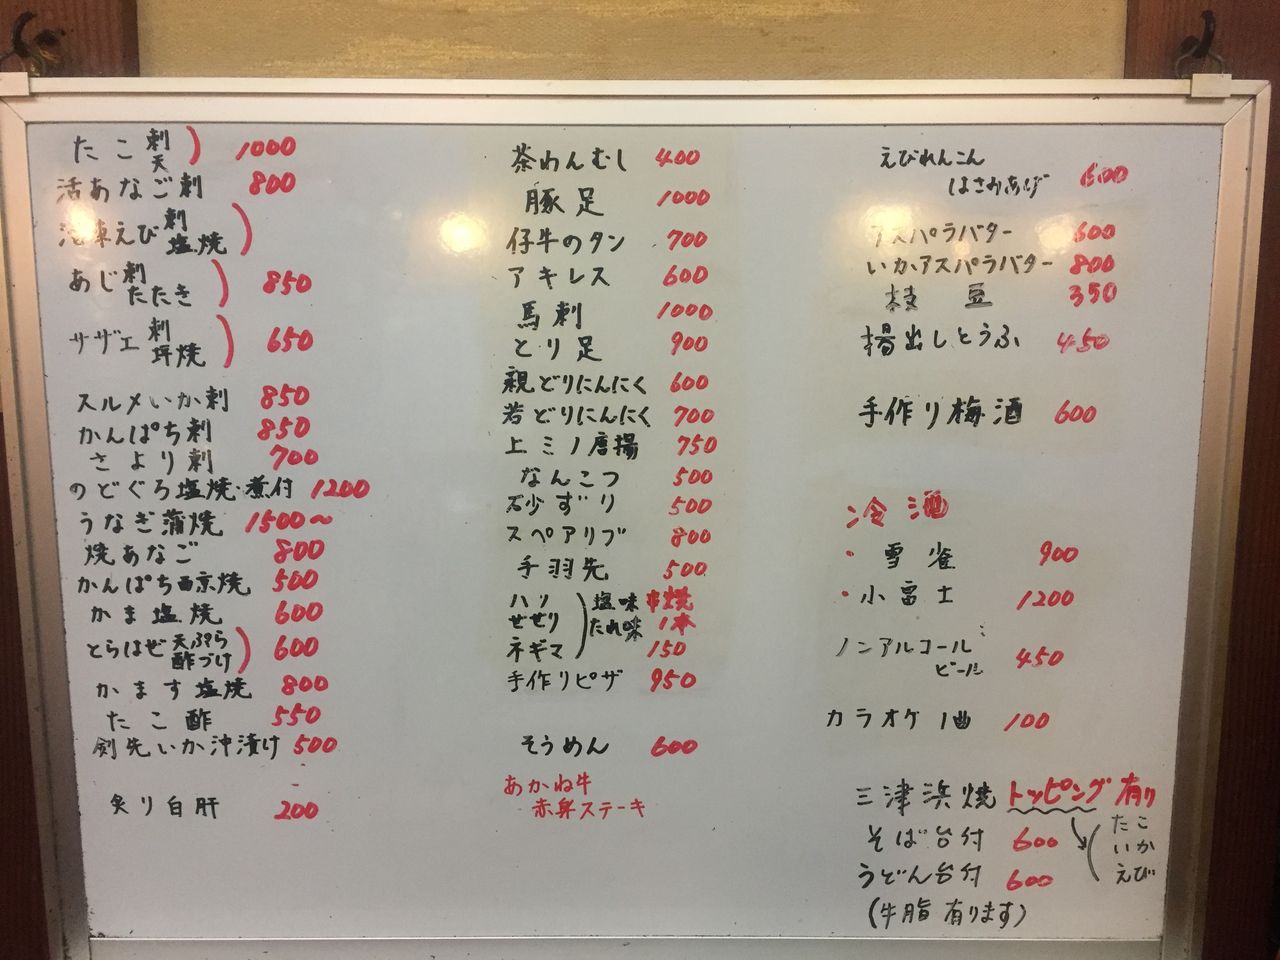 たこ 刺 天 ) 1000
活あなご刺 800
凍えび 刺 塩焼 )
あじ 刺 たたき ) 850
サザエ 刺 坪焼 ) 650
スルメいか刺 850
かんぱち刺 850
さより刺 700
のどぐろ塩焼・煮付 1200
うなぎ蒲焼 1500〜
焼あなご 800
かんぱち西京焼 500
かま塩焼 600
とらはぜ 天ぷら 酢づけ ) 600
かます塩焼 800
たこ酢 550
剣先いか沖漬け 500
炙り白肝 200
茶わんむし 400
豚足 1000
仔牛のタン 700
アキレス 600
馬刺 1000
とり足 900
親どりにんにく 600
若どりにんにく 700
上ミノ唐揚 750
なんこつ 500
砂ずり 500
スペアリブ 800
手羽先 500
ハツ 塩味 串焼
せせり たれ味 1本
ネギマ 150
手作りピザ 950
そうめん 600
あかね牛
赤身ステーキ
えびれんこん
はさみあげ 600
アスパラバター 600
いかアスパラバター 800
枝豆 350
揚出しとうふ 450
手作り梅酒 600
冷酒
・雪雀 900
・小富士 1200
ノンアルコール
ビール 450
カラオケ1曲 100
三津浜焼 トッピング有り
そば台付 600
うどん台付 600
(牛脂有ります)
たこ
いか
えび